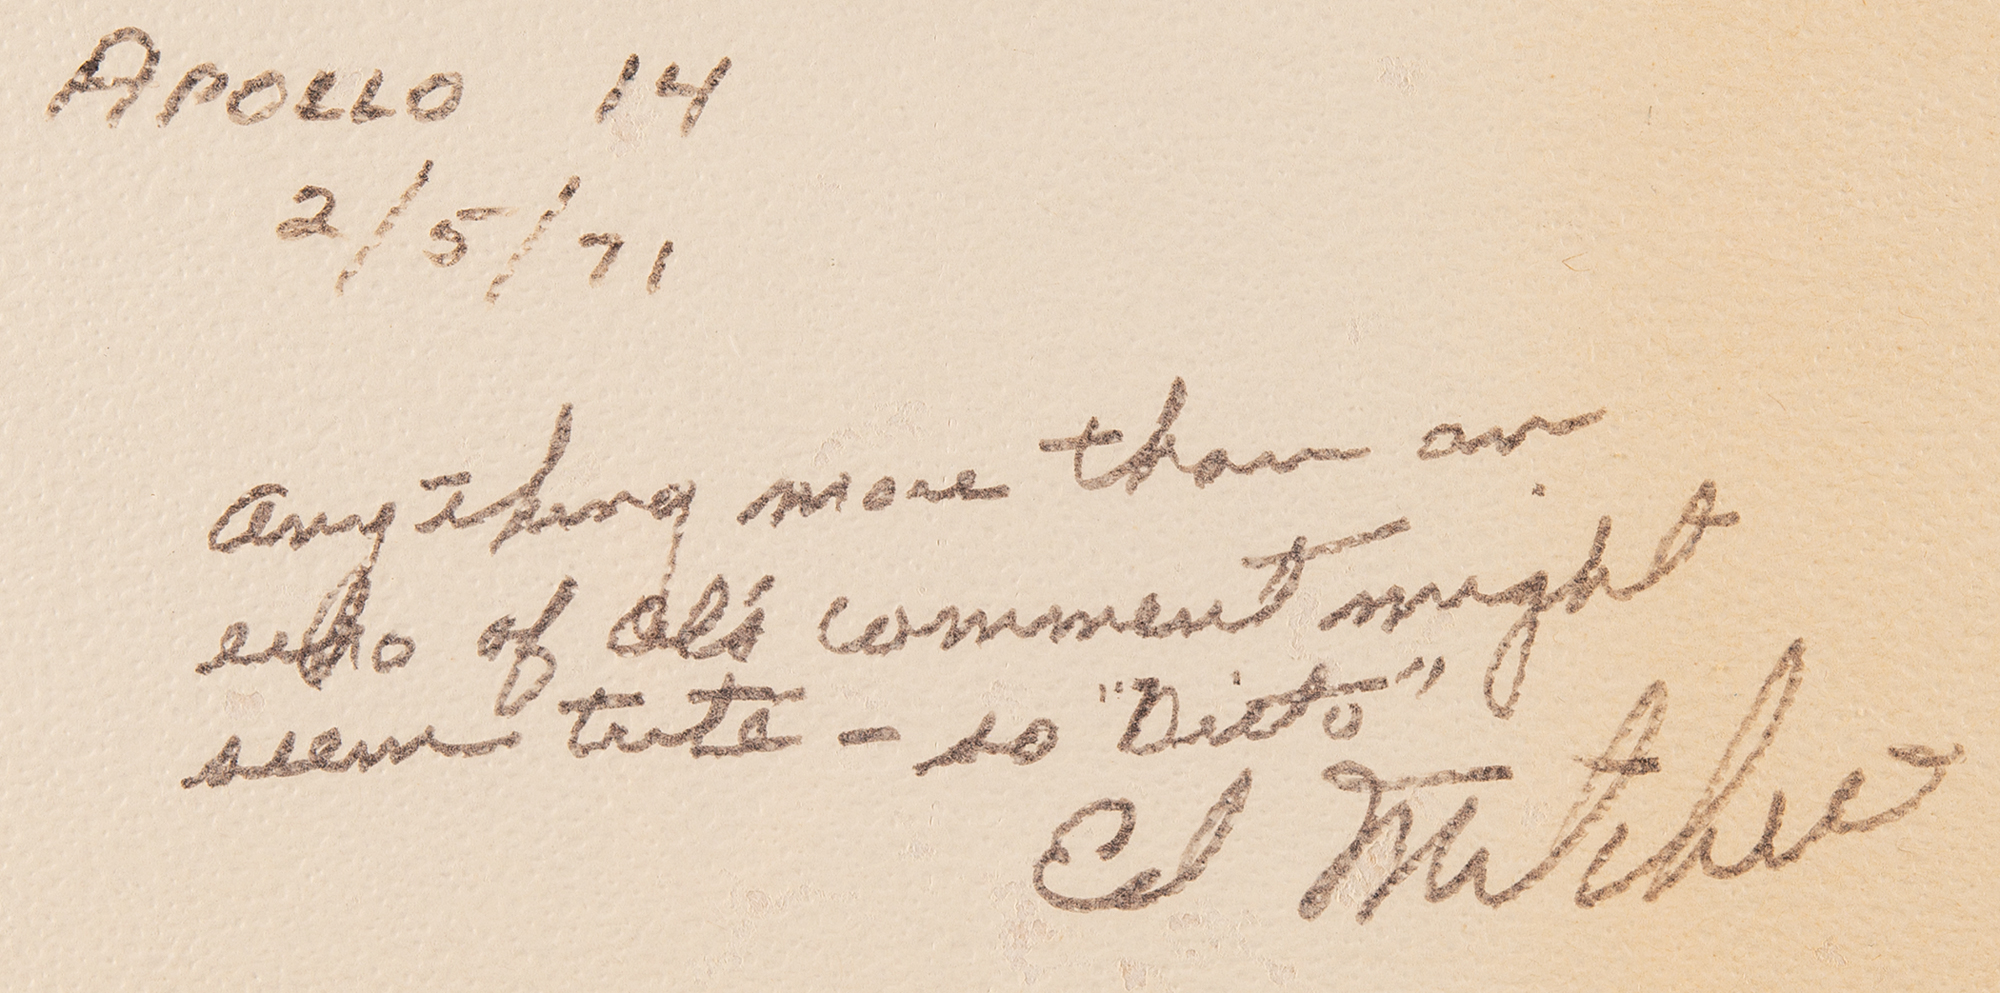 APOLLO 14
2/5/71
Anything more than an
echo of Al's comment might
seem trite - so "Ditto"
Ed Mitchell